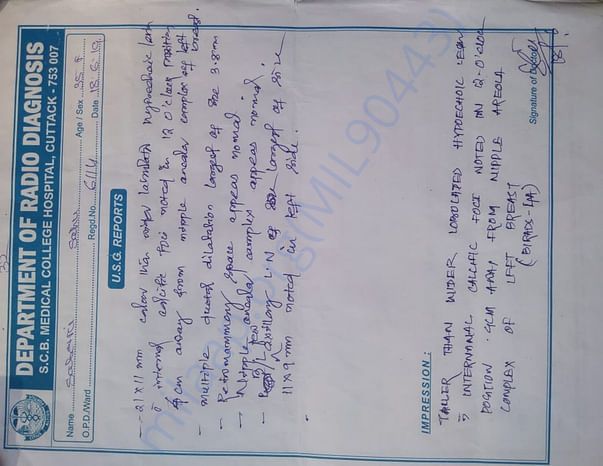 DEPARTMENT OF RADIO DIAGNOSIS
S.C.B. MEDICAL COLLEGE HOSPITAL, CUTTACK - 753 007
Name Sahu Age / Sex
O.P.D./Ward Regd.No. 6114 Date 18.6.19
U.S.G. REPORTS
- 21 X 11 mm than wider lobulated hypoechoic lesion
internal calcific foci noted in 12 O'clock position
4 cm away from nipple areolar complex of left breast.
- multiple ductal dilatation largest of size 3.8mm
- Retromammary space appears normal
- Nipple areolar complex appears normal.
- axillary LN of largest of size
11 X 9 mm noted in left side.
IMPRESSION :
TALLER THAN WIDER LOBULATED HYPOECHOIC
INTERNAL CALCIFIC FOCI NOTED IN 12-O'CLOCK
POSITION 4CM AWAY FROM NIPPLE AREOLA
COMPLEX OF LEFT BREAST
(BIRADS-4A)
Signature of Doctor
(MIL904443)